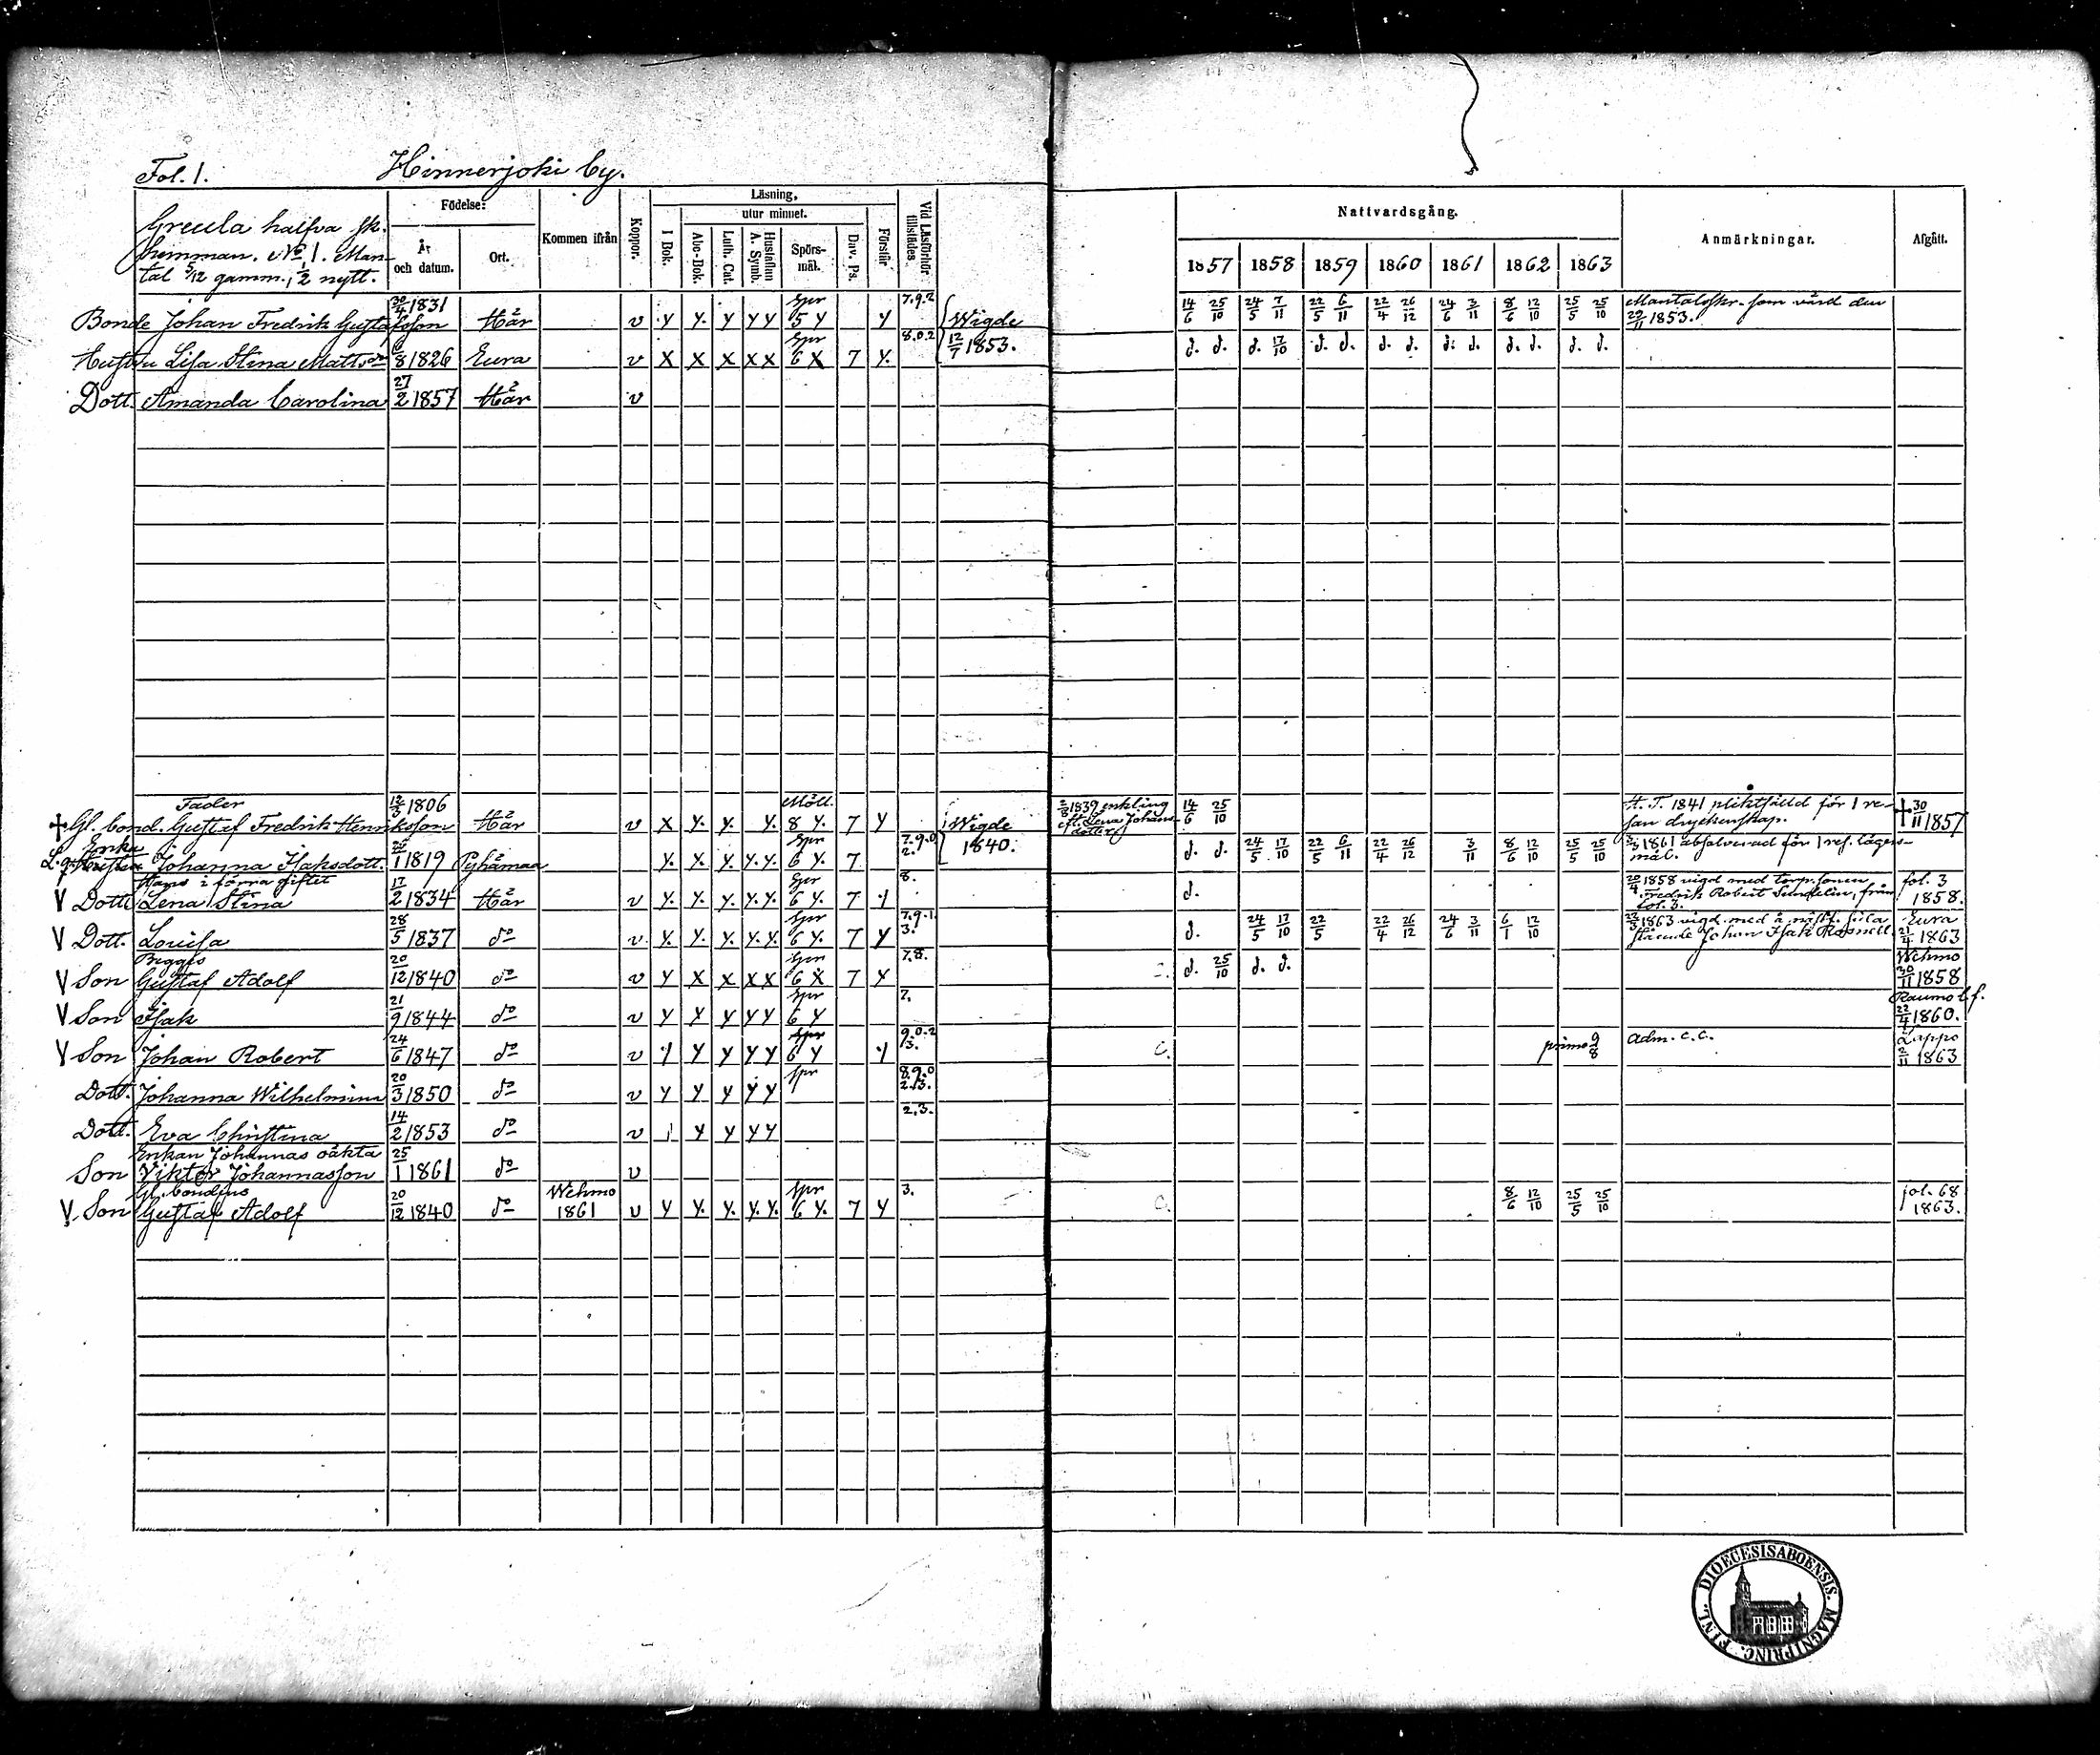 Fol. 1. Hinnerjoki by.
Födelse: Kommen ifrån Koppor. Läsning, Vid Läsförhör tillstädes
År och datum. Ort. I Bok. utur minnet. Förstår
Abc-Bok. Luth. Cat. Hustaflan A. Symb. Spörsmål. Dav. Ps.
Nattvardsgång. Anmärkningar. Afgått.
1857 1858 1859 1860 1861 1862 1863
halfva sk.
hemman. No 1. Man-
tal 5/12 gamm., 1/2 nytt.
Bonde Johan Fredrik Gustafsson 30/4 1831 Hår v y y. y y y Spr 5 y y 7.9.2 Wigde 14/6 25/10 24/5 7/11 22/5 6/11 22/4 26/12 24/6 3/11 8/6 12/10 25/5 25/10 Mantalsskr. som värd den
29/11 1853.
Hustru Lisa Stina Mattsdr 8 1826 Eura v x x x x x Spr 6 x 7 y. 8.0.2 12/7 1853. d. d. d. 17/10 d. d. d. d. d. d. d. d. d. d.
Dott. Amanda Carolina 27/2 1857 Hår v
Fader
† Gl. bond. Gustaf Fredrik Henriksson 12/3 1806 Hår v x y. y. y. Möll. 8 y. 7 y Wigde 1839 enkling
eft. Lena Johans-
dotter 14/6 25/10 H. T. 1841 pliktfälld för 1 re-
san dryckenskap. † 30/11 1857
Enka
Hustru Johanna Isaksdott. 1 1819 Pyhämaa y. y. y. y. y. Spr 6 y. 7 7.9.0 2. 1840. d. d. 24/5 17/10 22/5 6/11 22/4 26/12 3/11 8/6 12/10 25/5 25/10 1861 absolverad för 1 res. lägers-
mål.
Hans i förra giftet
V Dott. Lena Stina 17/2 1834 Hår v y. y. y. y. y. Spr 6 y. 7 y 8. d. 20/4 1858 vigd med torp. sonen
Fredrik Robert Sundelin, från
fol. 3. fol. 3
1858.
V Dott. Lovisa 28/5 1837 do v y. y. y. y. y. Spr 6 y. 7 y 7.9.1. 3. d. 24/5 17/10 22/5 22/4 26/12 24/6 3/11 6/1 12/10 1863 vigd med å sida
stående Johan Isak Eura
21/4 1863
Bägges
V Son Gustaf Adolf 20/12 1840 do v y x x x x Spr 6 x 7 y 7.8. d. 25/10 d. d. Wehmo
30/11 1858
V Son Isak 21/9 1844 do v y y y y y Spr 6 y 7. Raumo l.f.
22/4 1860.
V Son Johan Robert 24/6 1847 do v y y y y y Spr 6 y y 9.0.2 3. C. primo 9/8 adm. c.c. Lappo
2/11 1863
Dott. Johanna Wilhelmina 20/3 1850 do v y y y y y Spr 8.9.0 2.3.
Dott. Eva Christina 14/2 1853 do v y y y y 2.3.
Enkan Johannas oäkta
Son Viktor Johannasson 25/1 1861 do v
Gl. bondens
V. Son Gustaf Adolf 20/12 1840 do Wehmo
1861 v y y. y. y. y. Spr 6 y. 7 y 3. C. 8/6 12/10 25/5 25/10 fol. 68
1863.
DIOECESIS ABOENSIS. MAGNI PRINC. FINL.